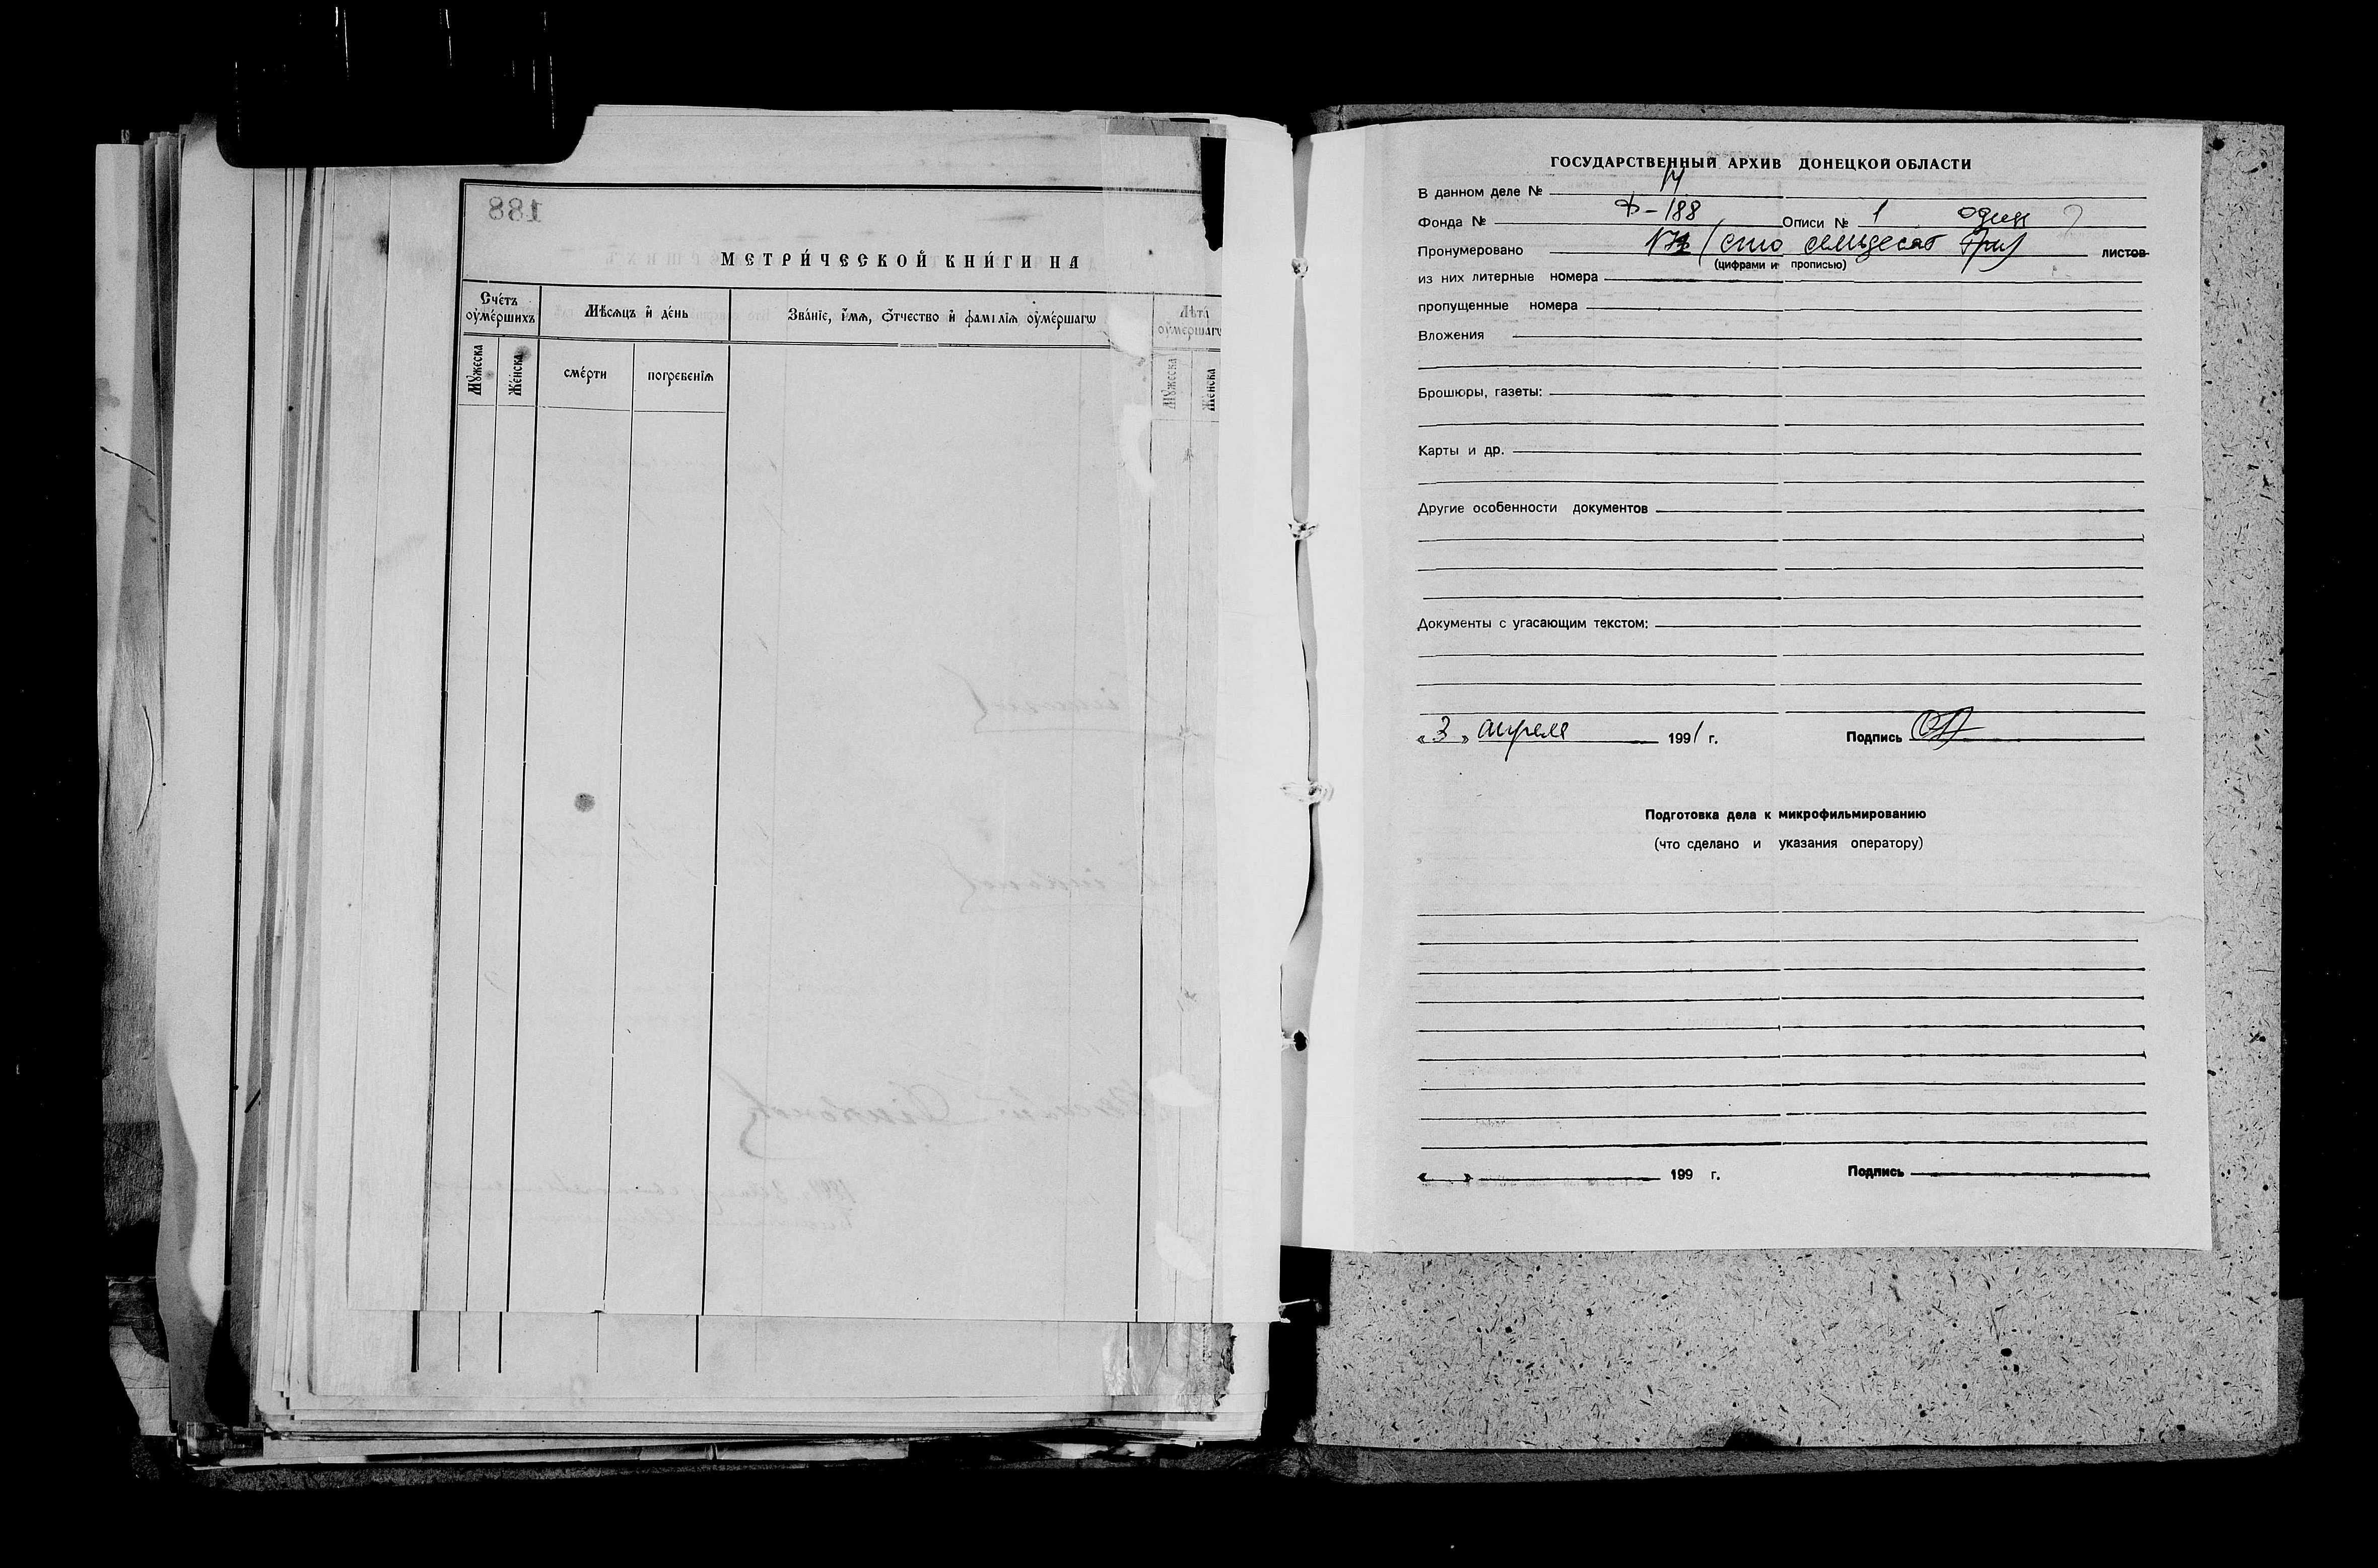 188
МЕТРИ́ЧЕСКОЙ КНИ́ГИ НА
Сче́тъ оу҆ме́ршихъ
Мѣ́сѧцъ и҆ де́нь
Зва́нїе, и҆́мѧ, ѻ҆́тчество и҆ фамı́лїѧ оу҆ме́ршагѡ
Лѣ́та оу҆ме́ршагѡ
Мꙋ́жеска
Же́нска
сме́рти
погребе́нїѧ
Мꙋ́жеска
Же́нска
ГОСУДАРСТВЕННЫЙ АРХИВ ДОНЕЦКОЙ ОБЛАСТИ
В данном деле № 14
Фонда № Ф-188 Описи № 1 один
Пронумеровано (сто семьдесят три) листов
(цифрами и прописью)
из них литерные номера
пропущенные номера
Вложения
Брошюры, газеты:
Карты и др.
Другие особенности документов
Документы с угасающим текстом:
«3» апреля 1991 г. Подпись
Подготовка дела к микрофильмированию
(что сделано и указания оператору)
« » 199 г. Подпись